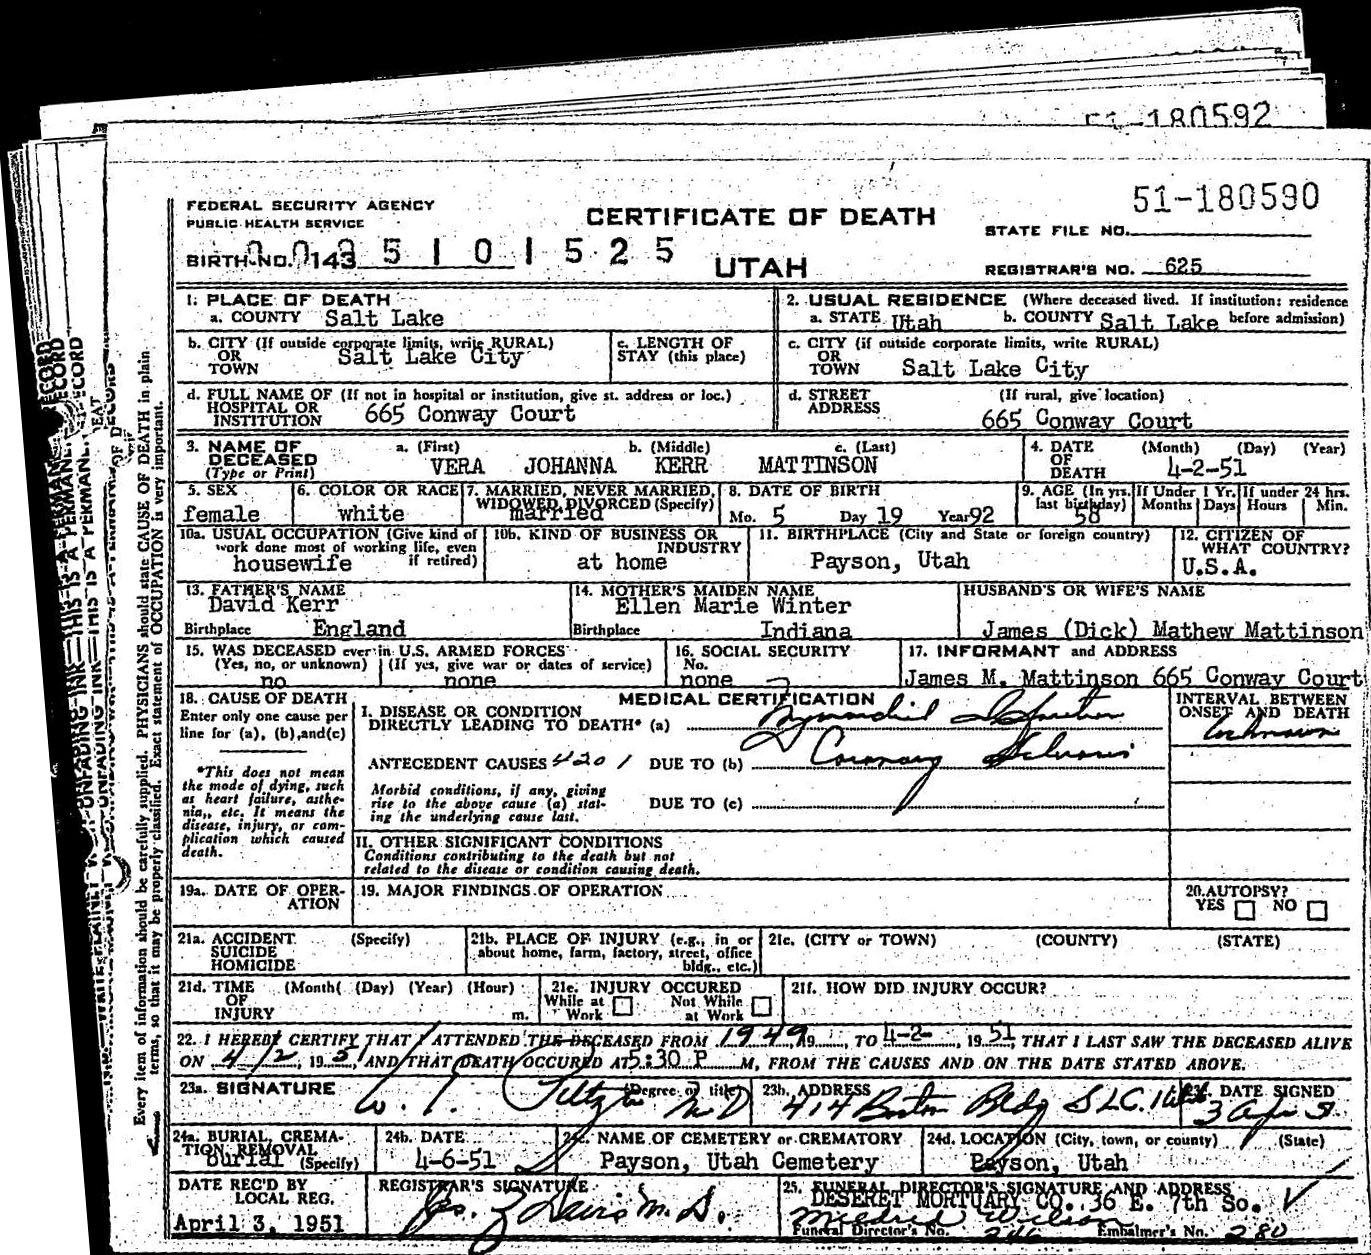 51-180592
51-180590
FEDERAL SECURITY AGENCY
PUBLIC HEALTH SERVICE
CERTIFICATE OF DEATH
STATE FILE NO.
BIRTH NO. 143 5 1 0 1 5 2 5
UTAH
REGISTRAR'S NO. 625
1. PLACE OF DEATH
a. COUNTY Salt Lake
2. USUAL RESIDENCE (Where deceased lived. If institution: residence
a. STATE Utah b. COUNTY Salt Lake before admission)
b. CITY (If outside corporate limits, write RURAL)
OR
TOWN Salt Lake City
c. LENGTH OF
STAY (this place)
c. CITY (if outside corporate limits, write RURAL)
OR
TOWN Salt Lake City
d. FULL NAME OF (If not in hospital or institution, give st. address or loc.)
HOSPITAL OR
INSTITUTION 665 Conway Court
d. STREET (If rural, give location)
ADDRESS
665 Conway Court
3. NAME OF a. (First) b. (Middle) c. (Last)
DECEASED
(Type or Print) VERA JOHANNA KERR MATTINSON
4. DATE (Month) (Day) (Year)
OF
DEATH 4-2-51
5. SEX
female
6. COLOR OR RACE
white
7. MARRIED, NEVER MARRIED,
WIDOWED, DIVORCED (Specify)
married
8. DATE OF BIRTH
Mo. 5 Day 19 Year 92
9. AGE (In yrs.
last birthday)
58
If Under 1 Yr.
Months Days
If under 24 hrs.
Hours Min.
10a. USUAL OCCUPATION (Give kind of
work done most of working life, even
if retired)
housewife
10b. KIND OF BUSINESS OR
INDUSTRY
at home
11. BIRTHPLACE (City and State or foreign country)
Payson, Utah
12. CITIZEN OF
WHAT COUNTRY?
U.S.A.
13. FATHER'S NAME
David Kerr
Birthplace England
14. MOTHER'S MAIDEN NAME
Ellen Marie Winter
Birthplace Indiana
HUSBAND'S OR WIFE'S NAME
James (Dick) Mathew Mattinson
15. WAS DECEASED ever in U.S. ARMED FORCES
(Yes, no, or unknown) (If yes, give war or dates of service)
no none
16. SOCIAL SECURITY
No.
none
17. INFORMANT and ADDRESS
James M. Mattinson 665 Conway Court
18. CAUSE OF DEATH
Enter only one cause per
line for (a), (b), and (c)
*This does not mean
the mode of dying, such
as heart failure, asthe-
nia,, etc. It means the
disease, injury, or com-
plication which caused
death.
MEDICAL CERTIFICATION
I. DISEASE OR CONDITION
DIRECTLY LEADING TO DEATH* (a)
ANTECEDENT CAUSES 420 1 DUE TO (b) Coronary
Morbid conditions, if any, giving
rise to the above cause (a) stat-
ing the underlying cause last.
DUE TO (c)
INTERVAL BETWEEN
ONSET AND DEATH
Unknown
II. OTHER SIGNIFICANT CONDITIONS
Conditions contributing to the death but not
related to the disease or condition causing death.
19a. DATE OF OPER-
ATION
19. MAJOR FINDINGS OF OPERATION
20. AUTOPSY?
YES NO
21a. ACCIDENT (Specify)
SUICIDE
HOMICIDE
21b. PLACE OF INJURY (e.g., in or
about home, farm, factory, street, office
bldg., etc.)
21c. (CITY or TOWN) (COUNTY) (STATE)
21d. TIME (Month( (Day) (Year) (Hour)
OF
INJURY m.
21e. INJURY OCCURED
While at Work Not While at Work
21f. HOW DID INJURY OCCUR?
22. I HEREBY CERTIFY THAT I ATTENDED THE DECEASED FROM 1949, 19 , TO 4-2-, 19 51, THAT I LAST SAW THE DECEASED ALIVE
ON 4/2, 19 51, AND THAT DEATH OCCURED AT 5:30 P M, FROM THE CAUSES AND ON THE DATE STATED ABOVE.
23a. SIGNATURE (Degree or title)
W. T. MD
23b. ADDRESS
414 Boston Bldg SLC. Utah
DATE SIGNED
3 Apr 51
24a. BURIAL, CREMA-
TION, REMOVAL
(Specify)
Burial
24b. DATE
4-6-51
NAME OF CEMETERY or CREMATORY
Payson, Utah Cemetery
24d. LOCATION (City, town, or county) (State)
Payson, Utah
DATE REC'D BY
LOCAL REG.
April 3, 1951
REGISTRAR'S SIGNATURE
Davis M. D.
25. FUNERAL DIRECTOR'S SIGNATURE AND ADDRESS
DESERET MORTUARY CO. 36 E. 7th So.
Mildred Wilson
Funeral Director's No. 246 Embalmer's No. 280
Every item of information should be carefully supplied. PHYSICIANS should state CAUSE OF DEATH in plain
terms, so that it may be properly classified. Exact statement of OCCUPATION is very important.